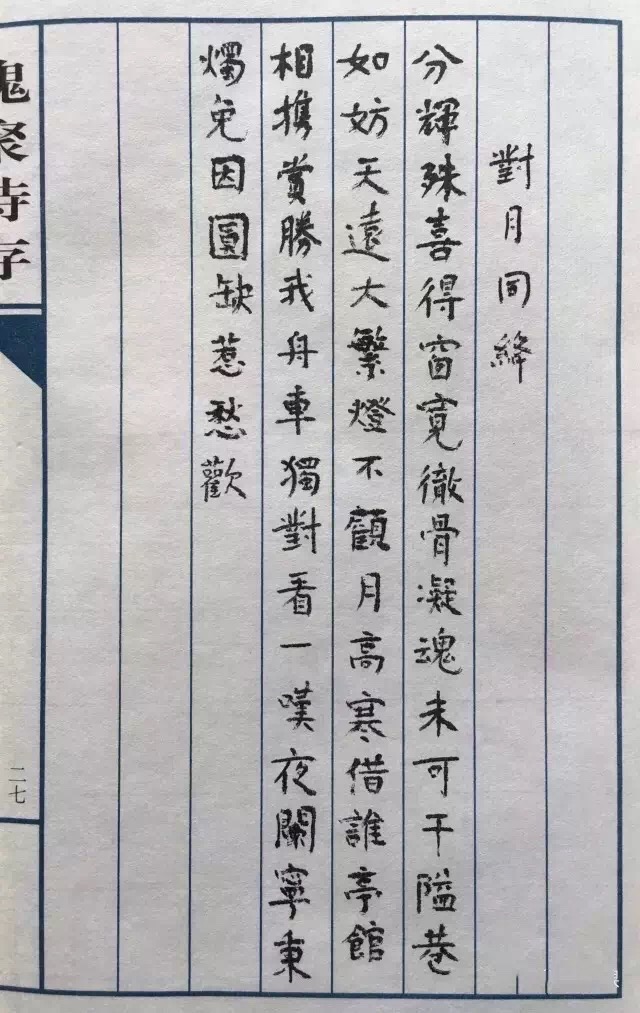 對月同絳
分輝殊喜得窗寬徹骨凝魂未可干隘巷
如妨天遠大繁燈不顧月高寒借誰亭館
相攜賞勝我舟車獨對看一嘆夜闌寧秉
燭免因圓缺惹愁歡
槐聚詩存
二七